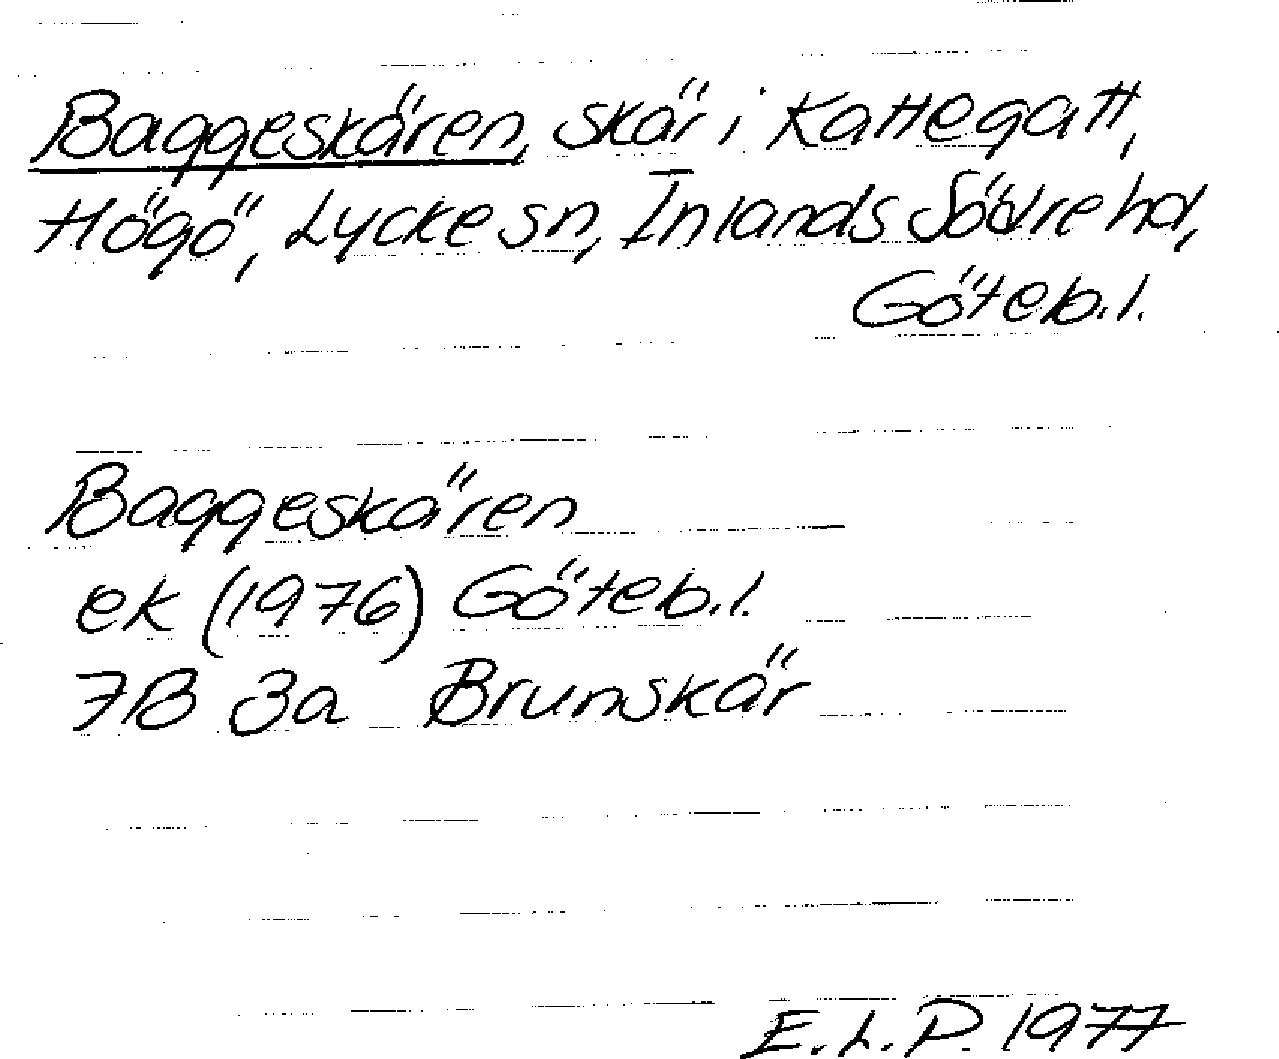 Baggeskären, skär i Kattegatt,
Högö, Lycke sn, Inlands Södre hd,
Göteb.l.
Baggeskären
ek (1976) Göteb.l.
7B 3a Brunskär
E.L.P. 1977